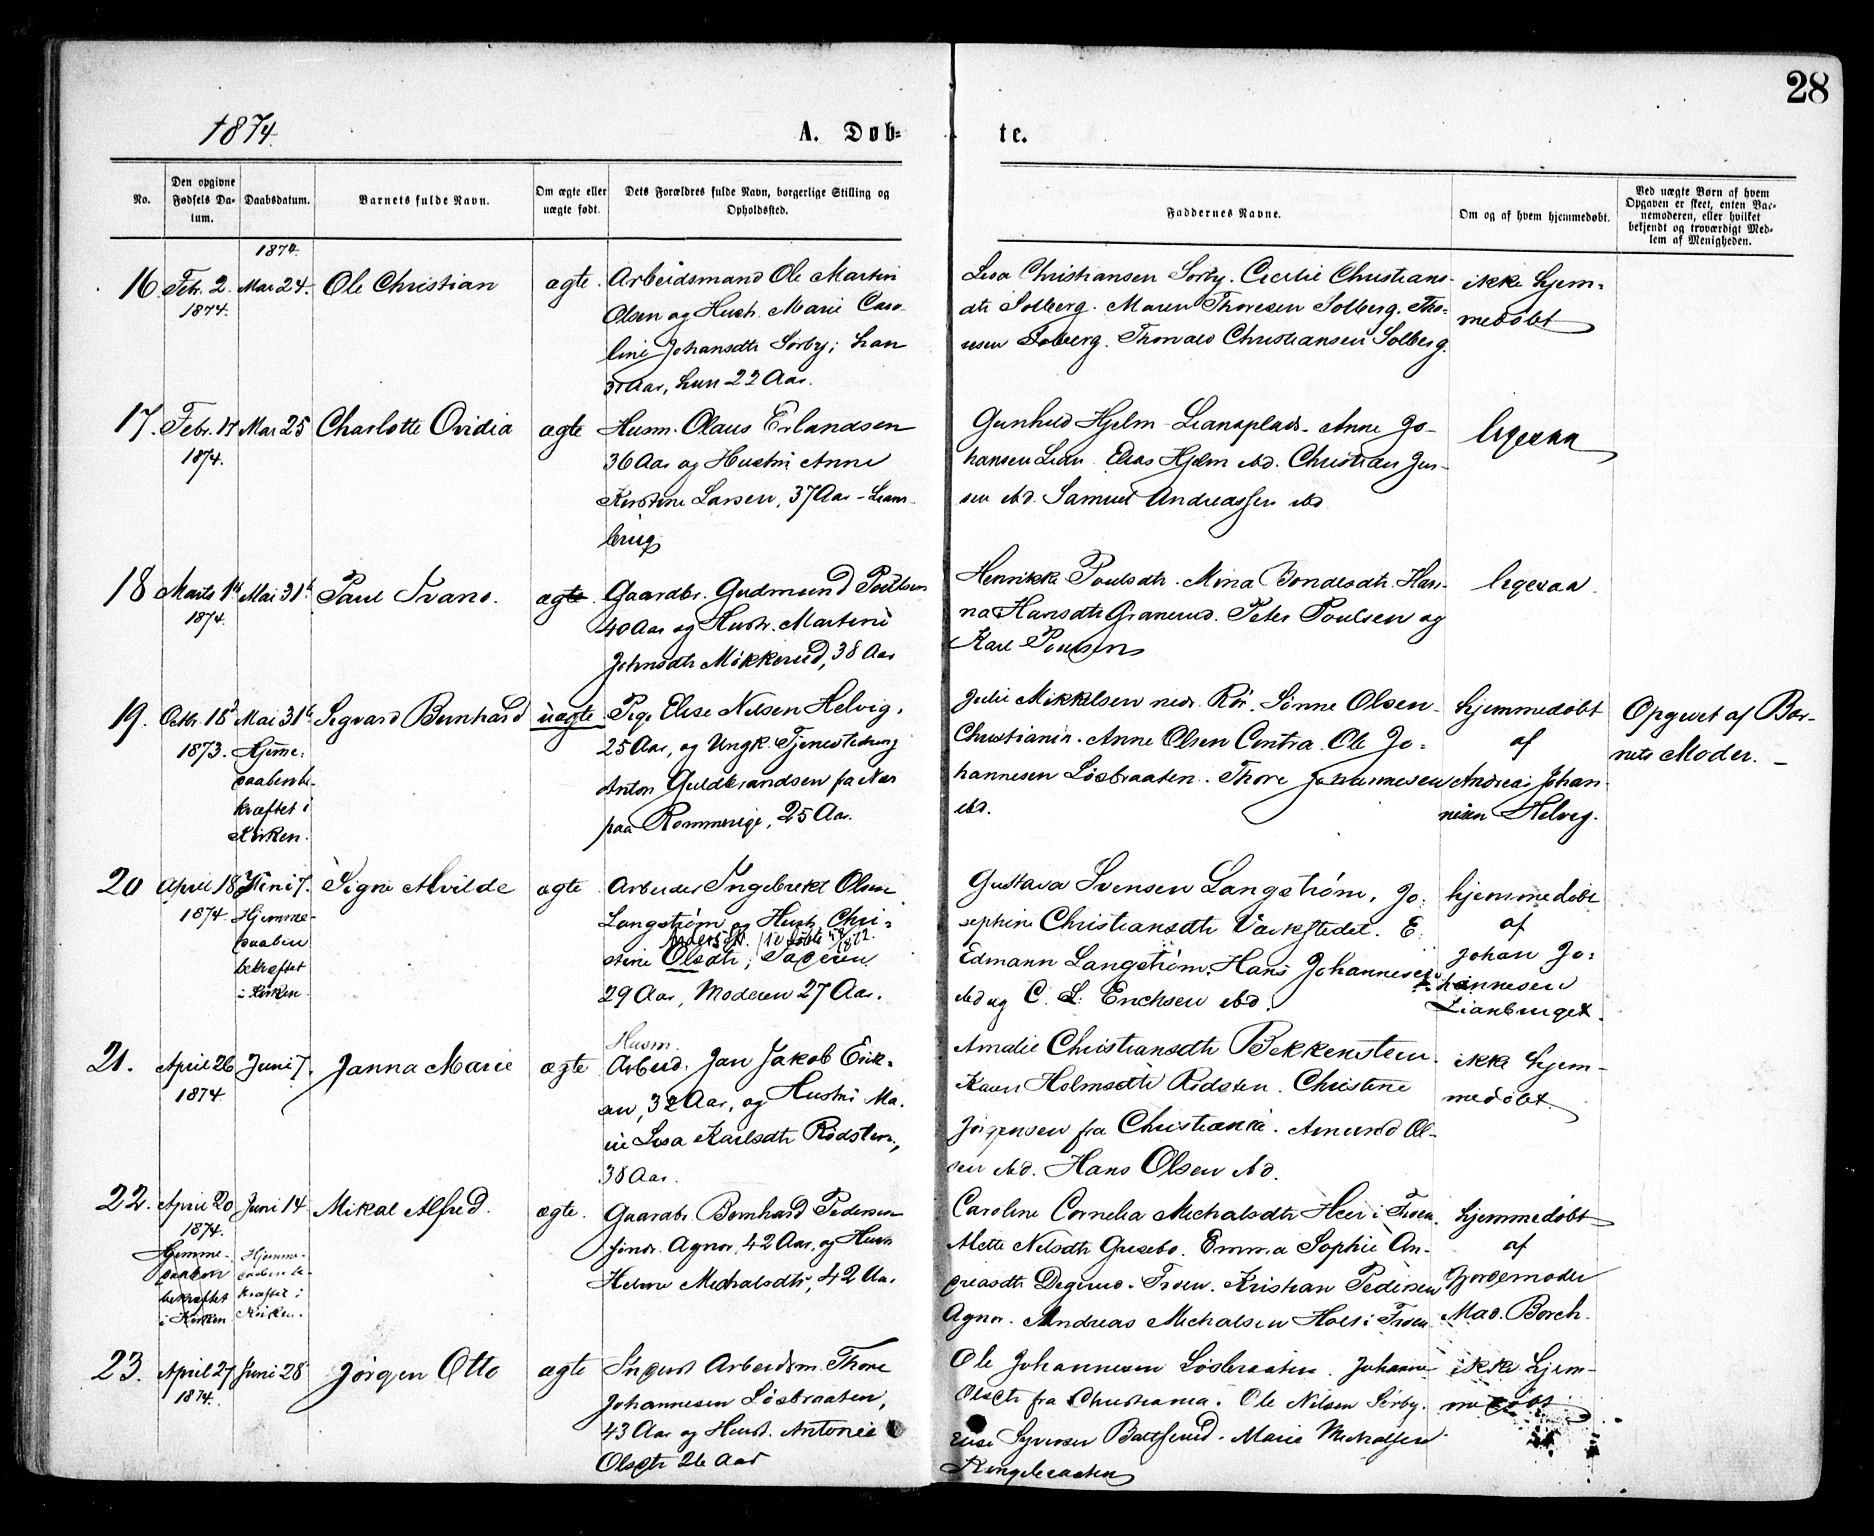 28
1874.
A. Døb-
te.
No.
Den opgivne
Fødsels Da-
tum.
Daabsdatum.
Barnets fulde Navn.
Om ægte eller
uægte født.
Dets Forældres fulde Navn, borgerlige Stilling og
Opholdssted.
Faddernes Navne.
Om og af hvem hjemmedøbt.
Ved uægte Børn af hvem
Opgaven er skeet, enten Bar-
nemoderen, eller hvilket
bekjendt og troværdigt Med-
lem af Menigheden.
1874.
16
Febr. 2.
1874.
Mai 24.
Ole Christian
ægte.
Arbeidsmand Ole Martin
Olsen og Hustr. Marie Caro-
line Johansdtr Sørby; han
31 Aar, hun 22 Aar.
Lisa Christiansen Sørby. Cecilie Christians-
dtr Solberg. Maren Thoresen Solberg. Tho-
resen Solberg. Thorvald Christiansen Solberg.
ikke hjem-
medøbt
17.
Febr. 17
1874.
Mai 25
Charlotte Ovidia
ægte
Husm. Olaus Erlandsen
36 Aar og Hustru Anne
Kirstine Larsen, 37 Aar - Lians-
brug
Gunhild Hjelm Liansplads. Anne Jo-
hansen Lian. Elias Hjelm ibd. Christian Jen-
sen ibd. Samuel Andreassen ibd
ligesaa
18
Marts 1st
1874.
Mai 31te
Paul Ivano.
ægte.
Gaardbr. Gudmund Poulsen
40 Aar og Hustr. Martine
Johnsdtr Møkkerud, 38 Aar
Henrikke Poulsdtr. Mina Bondesdtr. Han-
na Hansdtr Granerud. Peter Poulsen og
Karl Poulsen
ligesaa
19.
Octbr. 18d
1873.
Mai 31te
Hjemme-
daaben be-
kræftet i
Kirken.
Segvard Bernhard
uægte
Pige Elise Nilsen Helvig,
25 Aar, og Ungk. Tjenestedreng
Anton Guldbrandsen fra Næs
paa Romerige, 25 Aar.
Julie Mikkelsen nedr. Rør. Sønne Olsen
Christiania. Anne Olsen Centra. Ole Jo-
hannesen Løsbraaten. Thore Johannesen
ibd.
hjemmedøbt
af
Andreas Johan-
nesen Helvig.
Opgivet af Bar-
nets Moder.
20
April 18
1874.
Juni 7.
Hjemme-
daaben
bekræftet
i Kirken.
Signe Alvilde
ægte
Arbeider Ingebrekt Olsen
Langstrøm og Hustr. Chri-
stine Olsdtr, Faderen
29 Aar, Moderen 27 Aar.
Gustava Svensen Langstrøm, Jo-
sephine Christiansdtr Værkstedet. E.
Edmann Langstrøm. Hans Johannesen
ibd og C. L. Erichsen ibd.
hjemmedøbt
af
Johan Jo-
hannesen
Lianbruget.
21.
April 26
1874
Juni 7.
Janna Marie
ægte
Husm.
Arbeid. Jan Jakob Erik-
sen, 32 Aar, og Hustru Ma-
rie Lisa Karlsdtr Rødsten,
38 Aar.
Amalie Christiansdtr Bekkensteen.
Karen Holmsdtr Rødsten. Christine
Jørgensen fra Christiania. Amund Ol-
sen ibd. Hans Olsen ibd.
ikke hjem-
medøbt.
22.
April 20
1874.
Hjemme-
daaben
bekræftet
i Kirken
Juni 14
Hjemme-
daaben be-
kræftet i
Kirken.
Mikal Alfred.
ægte.
Gaardbr. Bernhard Pedersen
søndr. Agnor, 42 Aar, og Hustr
Helene Michalsdtr, 42 Aar.
Caroline Cornelia Michalsdtr Heer i Froen.
Mette Nilsdtr Gresebo. Emma Sophie An-
dreasdtr Degerud. Froen. Kristian Pedersen
Agnor. Andreas Michalsen Hoel i Froen
hjemmedøbt
af
Gjordemoder
Mad. Borch.
23.
April 27
1874.
Juni 28
Jørgen Otto
ægte
Arbeidsm. Thore
Johannesen Løsbraaten,
43 Aar og Hustr. Antonie
Olsdtr 26 Aar
Ole Johannesen Løsbraaten. Johanne
Olsdtr fra Christiania. Ole Nilsen Sørby.
Elise Syversen Ballerud. Marie Michalsen
Kongebraaten
ikke hjem-
medøbt